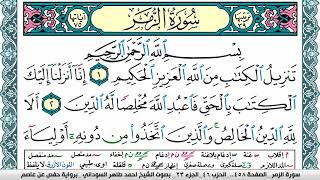 سُورَةُ الزُّمَرِ
بِسْمِ اللَّهِ الرَّحْمَٰنِ الرَّحِيمِ
تَنزِيلُ الْكِتَٰبِ مِنَ اللَّهِ الْعَزِيزِ الْحَكِيمِ ١ إِنَّا أَنزَلْنَا إِلَيْكَ
الْكِتَٰبَ بِالْحَقِّ فَاعْبُدِ اللَّهَ مُخْلِصًا لَّهُ الدِّينَ ٢ أَلَا
لِلَّهِ الدِّينُ الْخَالِصُ وَالَّذِينَ اتَّخَذُوا مِن دُونِهِ أَوْلِيَاءَ
سورة الزمر الصفحة ٤٥٨ .. الحزب ٤٦ .. الجزء ٢٣ .. بصوت الشيخ أحمد طاهر السويداني .. برواية حفص عن عاصم